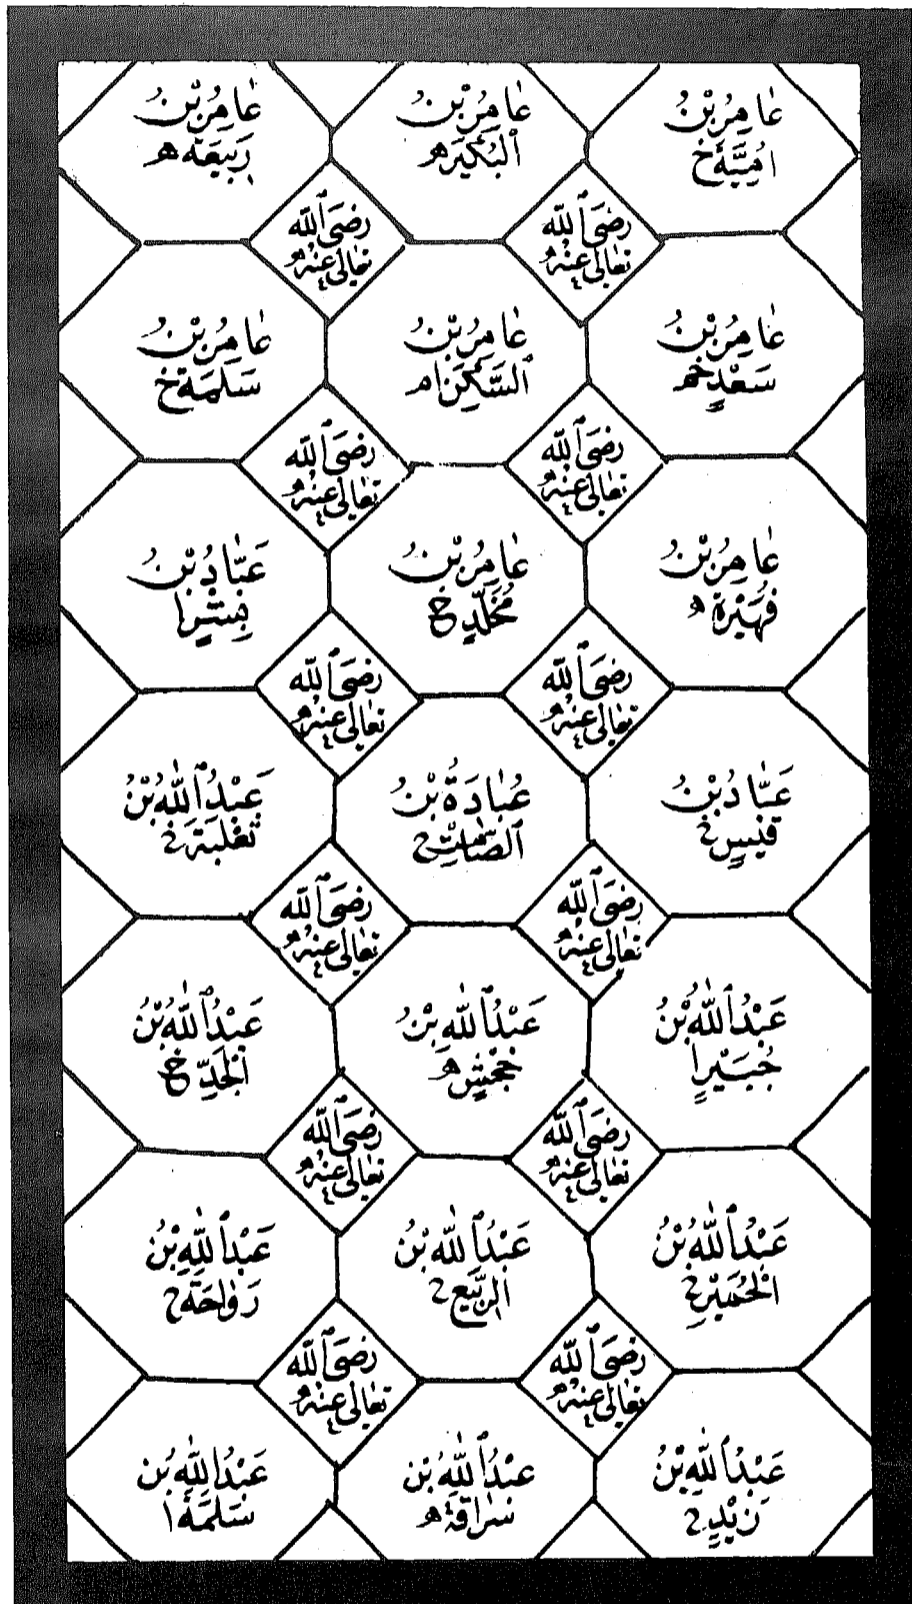 عَامِرُ بْنُ
اُمَيَّةَ خ
عَامِرُ بْنُ
الْبُكَيْرِ ه
عَامِرُ بْنُ
رَبِيعَةَ ه
رَضِىَ اللّٰه
تَعَالٰى عَنْهُم
رَضِىَ اللّٰه
تَعَالٰى عَنْهُم
عَامِرُ بْنُ
سَعْدٍ خ
عَامِرُ بْنُ
السَّكَنِ ا
عَامِرُ بْنُ
سَلَمَةَ خ
رَضِىَ اللّٰه
تَعَالٰى عَنْهُم
رَضِىَ اللّٰه
تَعَالٰى عَنْهُم
عَامِرُ بْنُ
فُهَيْرَةَ ه
عَامِرُ بْنُ
مُخَلَّدٍ خ
عَبَّادُ بْنُ
بِشْرٍ ا
رَضِىَ اللّٰه
تَعَالٰى عَنْهُم
رَضِىَ اللّٰه
تَعَالٰى عَنْهُم
عَبَّادُ بْنُ
قَيْسٍ خ
عُبَادَةُ بْنُ
الصَّامِتِ خ
عَبْدُ اللّٰهِ بْنُ
ثَعْلَبَةَ خ
رَضِىَ اللّٰه
تَعَالٰى عَنْهُم
رَضِىَ اللّٰه
تَعَالٰى عَنْهُم
عَبْدُ اللّٰهِ بْنُ
جُبَيْرٍ ا
عَبْدُ اللّٰهِ بْنُ
جَحْشٍ ه
عَبْدُ اللّٰهِ بْنُ
الْجَدِّ خ
رَضِىَ اللّٰه
تَعَالٰى عَنْهُم
رَضِىَ اللّٰه
تَعَالٰى عَنْهُم
عَبْدُ اللّٰهِ بْنُ
الْحُمَيْرِ خ
عَبْدُ اللّٰهِ بْنُ
الرَّبِيعِ خ
عَبْدُ اللّٰهِ بْنُ
رَوَاحَةَ خ
رَضِىَ اللّٰه
تَعَالٰى عَنْهُم
رَضِىَ اللّٰه
تَعَالٰى عَنْهُم
عَبْدُ اللّٰهِ بْنُ
زَيْدٍ خ
عَبْدُ اللّٰهِ بْنُ
سُرَاقَةَ ه
عَبْدُ اللّٰهِ بْنُ
سَلَمَةَ ا